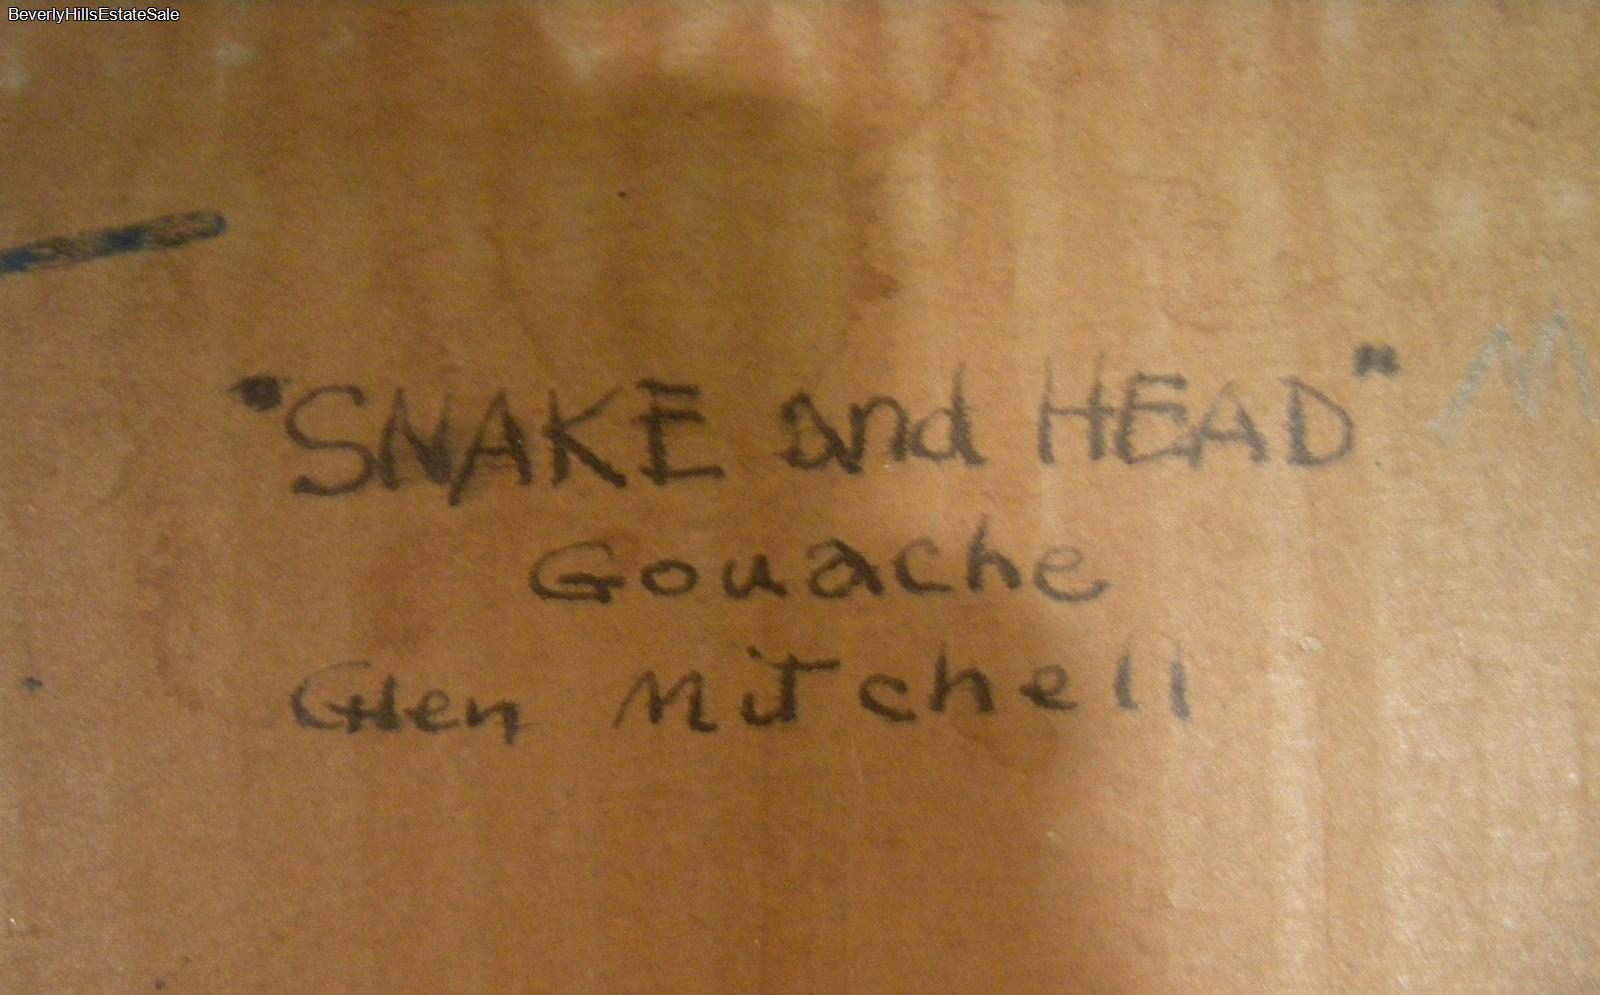 BeverlyHillsEstateSale
"SNAKE and HEAD"
Gouache
Glen Mitchell